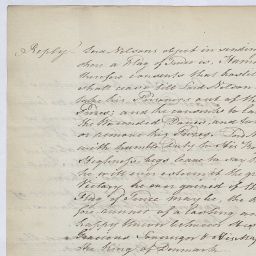 Reply Lord Nelsons object in sending
shore a Flag of Truce is, Humanity
therefore consents that hostil
shall cease till Lord Nelson
take his Prisoners out of th
Prizes, and he consents to la
the Wounded Danes, and to
or remove his Prizes. Lord
with humble duty to His
Highness begs leave to say
he will ever esteem it the gr
Victory he ever gained if th
Flag of Truce may be the
fore runner of a lasting an
happy Union between
Gracious Sovereign & His Maj
the King of Denmark